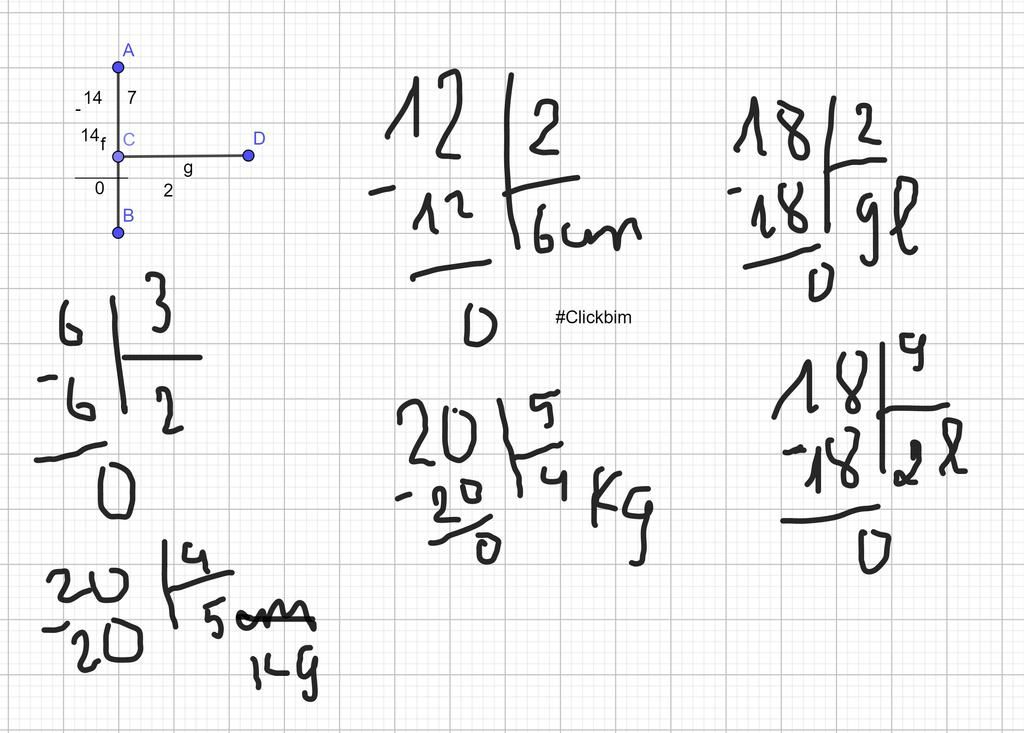 A
-14 7
14 f C D
g
0 2
B
12 2
-12 6cm
0
18 2
-18 9l
0
6 3
-6 2
0
#Clickbim
20 5
-20 4 Kg
0
18 9
-18 2l
0
20 4
-20 5 cm
Kg